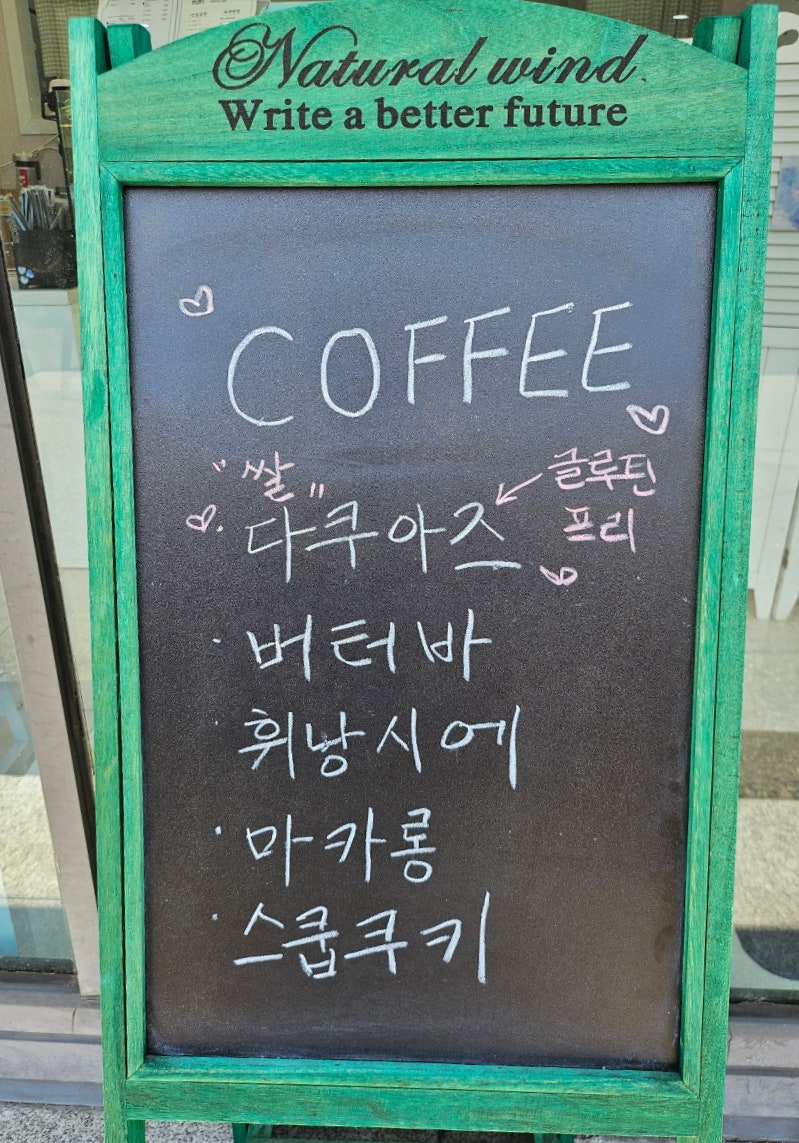 Natural wind.
Write a better future
COFFEE
"쌀"
· 다쿠아즈
글루틴
프리
· 버터바
· 휘낭시에
· 마카롱
· 스쿱쿠키